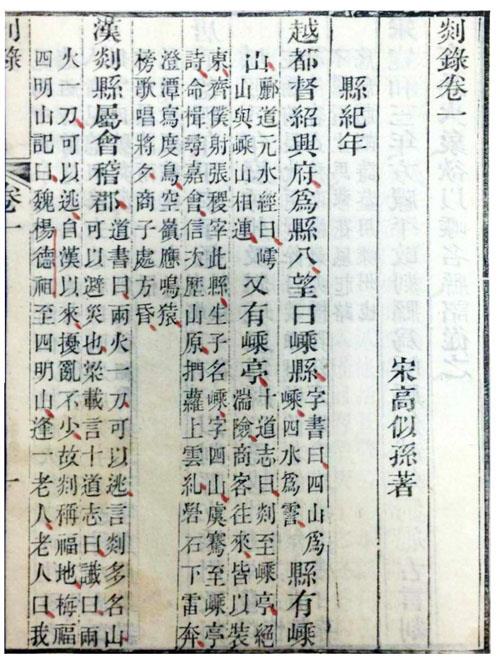 剡錄卷一
宋高似孫著
縣紀年
越都督紹興府爲縣八望曰嵊縣
字書曰四山爲
嵊四水爲霅
縣有嵊
山
酈道元水經曰嶀
山與嵊山相連
又有嵊亭
十道志曰剡至嵊亭絕
湍險商客往來皆以裝
東齊僕射張稷字此縣生子名嵊字四山虞騫至嵊亭
詩命楫尋嘉會信次歷山原捫蘿上雲糺礐石下雷奔
澄潭寫度鳥空嶺應鳴猿
榜歌唱將夕商子處方昏
漢剡縣屬會稽郡
道書曰兩火一刀可以逃言剡多名山
可以避災也梁載言十道志曰讖曰兩
火一刀可以逃自漢以來擾亂不少故剡稱福地梅福
四明山記曰魏楊德祖至四明山逢一老人老人曰我
剡錄
卷一
一